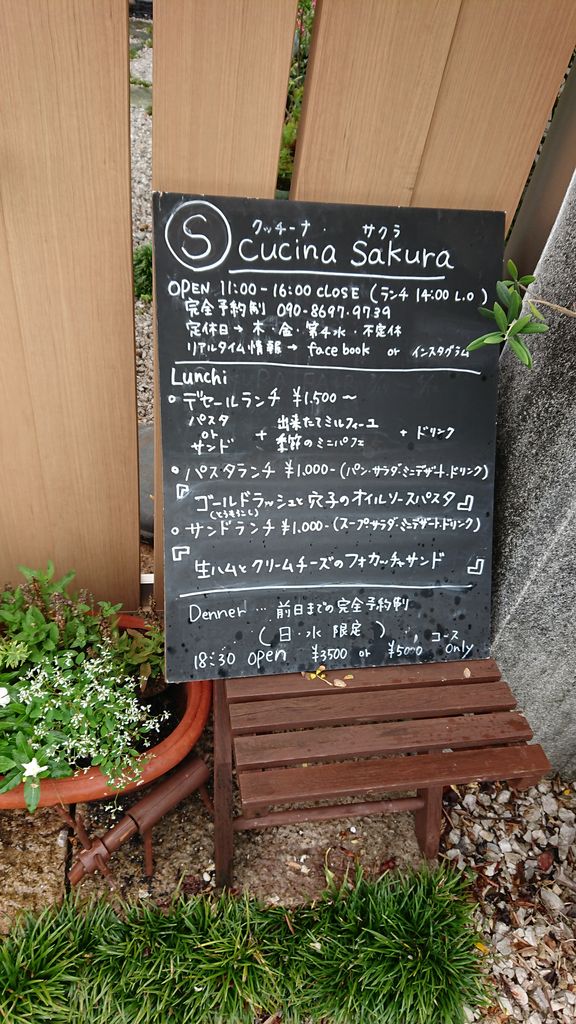 S
クッチーナ・サクラ
Cucina Sakura
OPEN 11:00-16:00 CLOSE (ランチ 14:00 L.O)
完全予約制 090-8697-9739
定休日→木・金・第4水・不定休
リアルタイム情報→facebook or インスタグラム
Lunchi
○デセールランチ ¥1,500〜
パスタ or サンド + 出来たてミルフィーユ 季節のミニパフェ + ドリンク
○パスタランチ ¥1.000-(パン・サラダ・ミニデザート・ドリンク)
『ゴールドラッシュと穴子のオイルソースパスタ』
(とうもろこし)
○サンドランチ ¥1.000-(スープ・サラダ・ミニデザート・ドリンク)
『生ハムとクリームチーズのフォカッチャサンド』
Denner … 前日までの完全予約制
(日・水 限定)
18:30 open ¥3500 or ¥5000 コース only